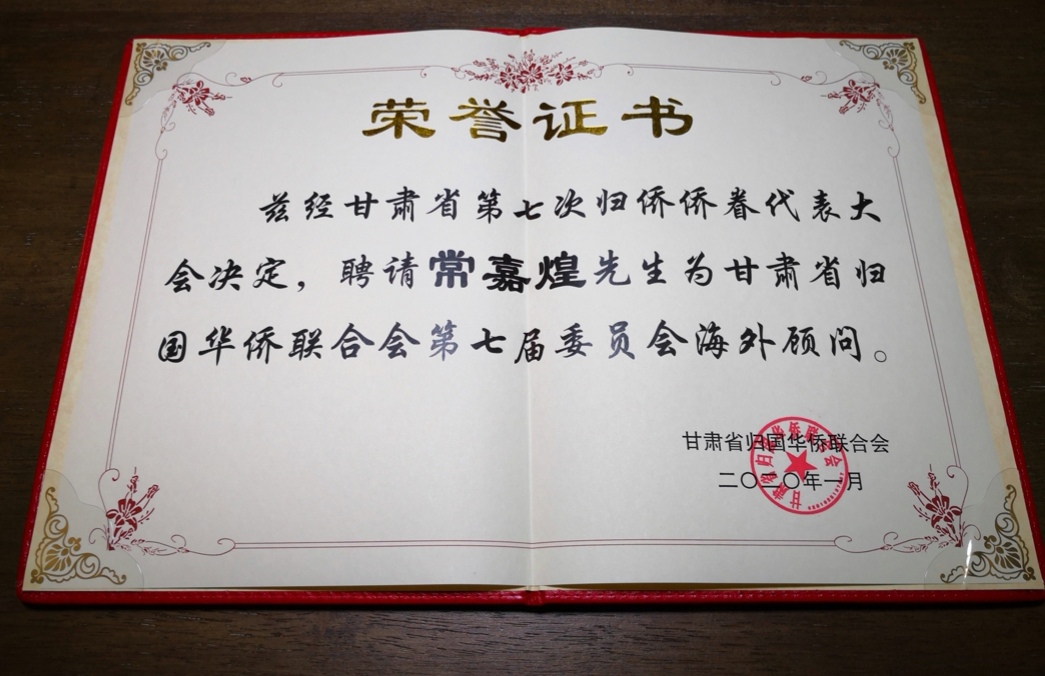 荣誉证书
兹经甘肃省第七次归侨侨眷代表大
会决定，聘请常嘉煌先生为甘肃省归
国华侨联合会第七届委员会海外顾问。
甘肃省归国华侨联合会
二〇二〇年一月
甘肃省归国华侨联合会